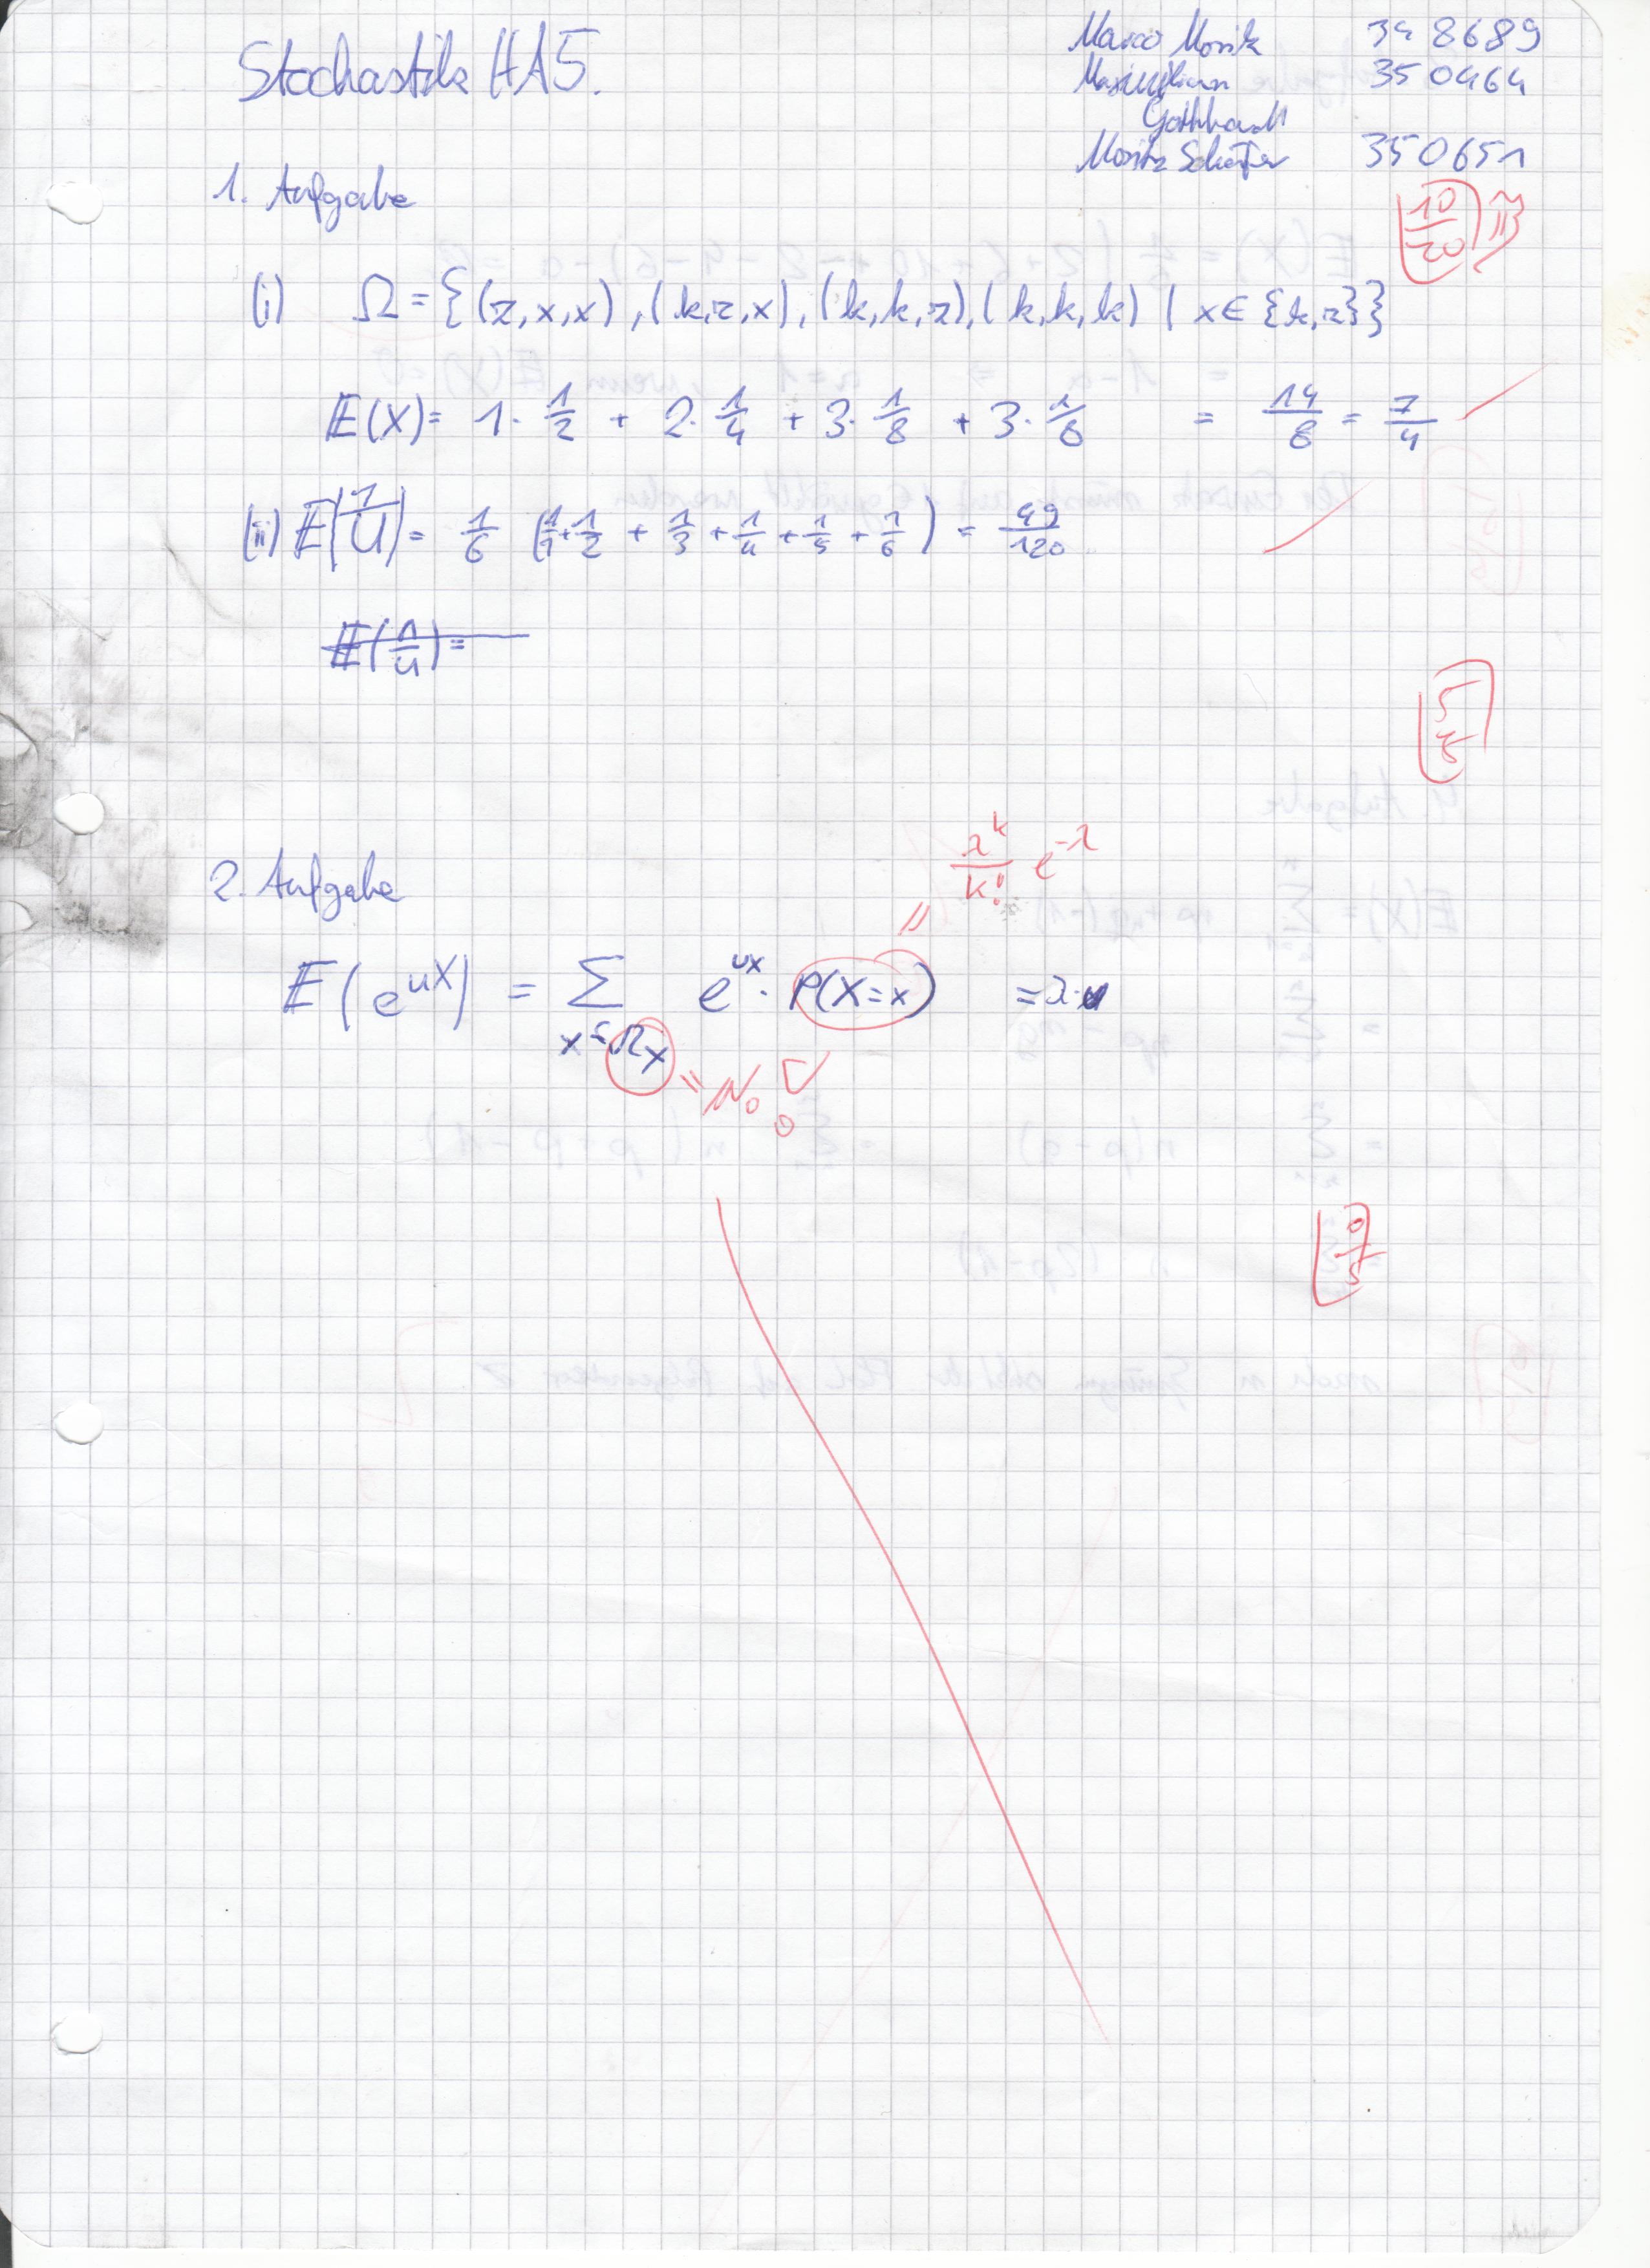 Stochastik HA5.
Marco Morik 348689
Maximilian 350464
Gotthardt
Moritz Schäfer 350651
10/20
1. Aufgabe
(i) Ω = {(z,x,x), (k,z,x), (k,k,z), (k,k,k) | x ∈ {k,z}}
E(X) = 1·1/2 + 2·1/4 + 3·1/8 + 3·1/8 = 14/8 = 7/4
(ii) E(1/U) = 1/6 (1/1 + 1/2 + 1/3 + 1/4 + 1/5 + 1/6) = 49/120
E(1/U) =
5/5
2. Aufgabe
λ^k/k! e^-λ
=
E(e^uX) = Σ e^ux · P(X=x) = λ·u
x∈Ωx
= N₀
0/5